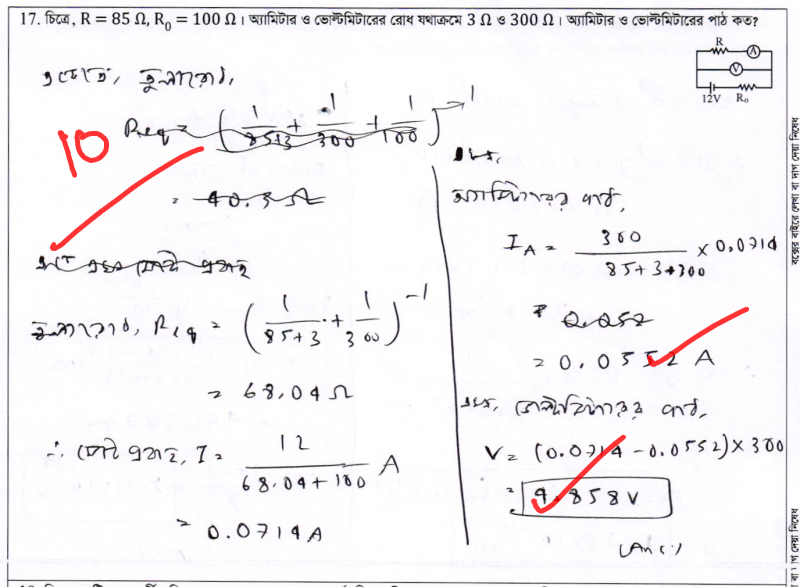 17. চিত্রে, R = 85 Ω, R₀ = 100 Ω। অ্যামিটার ও ভোল্টমিটারের রোধ যথাক্রমে 3 Ω ও 300 Ω। অ্যামিটার ও ভোল্টমিটারের পাঠ কত?
R
A
V
12V R₀
তুল্যরোধ,
10
Req = (1/(85+3) + 1/300 + 1/100)⁻¹
= 40.5 Ω
তুল্যরোধ, Req = (1/(85+3) + 1/300)⁻¹
= 68.04 Ω
∴ মোট প্রবাহ, I = 12/(68.04+100) A
= 0.0714 A
অ্যামিটারের পাঠ,
I_A = 300/(85+3+300) × 0.0714
= 0.052
= 0.0552 A
এবং, ভোল্টমিটারের পাঠ,
V = (0.0714 - 0.0552) × 300
= 4.858 V
(Ans:)
বক্সের বাইরে লেখা বা দাগ দেয়া নিষেধ
দাগ দেয়া নিষেধ